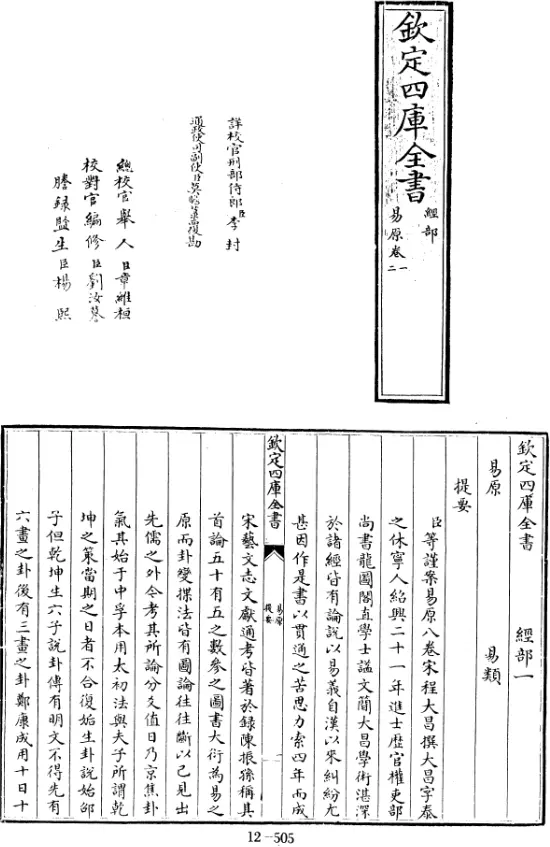 欽定四庫全書
經部
易原卷一
二
詳校官刑部侍郎臣李封
通政使司副使臣莫瞻菉覆勘
總校官舉人臣章維桓
校對官編修臣劉汝驀
謄録監生臣楊熙
欽定四庫全書　經部一
易原　易類
提要
臣等謹案易原八卷宋程大昌撰大昌字泰
之休寧人紹興二十一年進士歴官權吏部
尚書龍圖閣直學士諡文簡大昌學術湛深
於諸經皆有論說以易義自漢以來糾紛尤
甚因作是書以貫通之苦思力索四年而成
欽定四庫全書
易原
提要
宋藝文志文獻通考皆著於録陳振孫稱其
首論五十有五之數參之圖書大衍為易之
原而卦變揲法皆有圖論往往斷以己見出
先儒之外今考其所論分爻值日乃京焦卦
氣其始于中孚本用太初法與夫子所謂乾
坤之策當期之日者不合復姤生卦說始邵
子但乾坤生六子說卦傳有明文不得先有
六畫之卦後有三畫之卦鄭康成用十日十
12-505